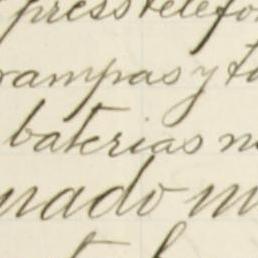 press telefo
rampas y ta
baterias n
nado m